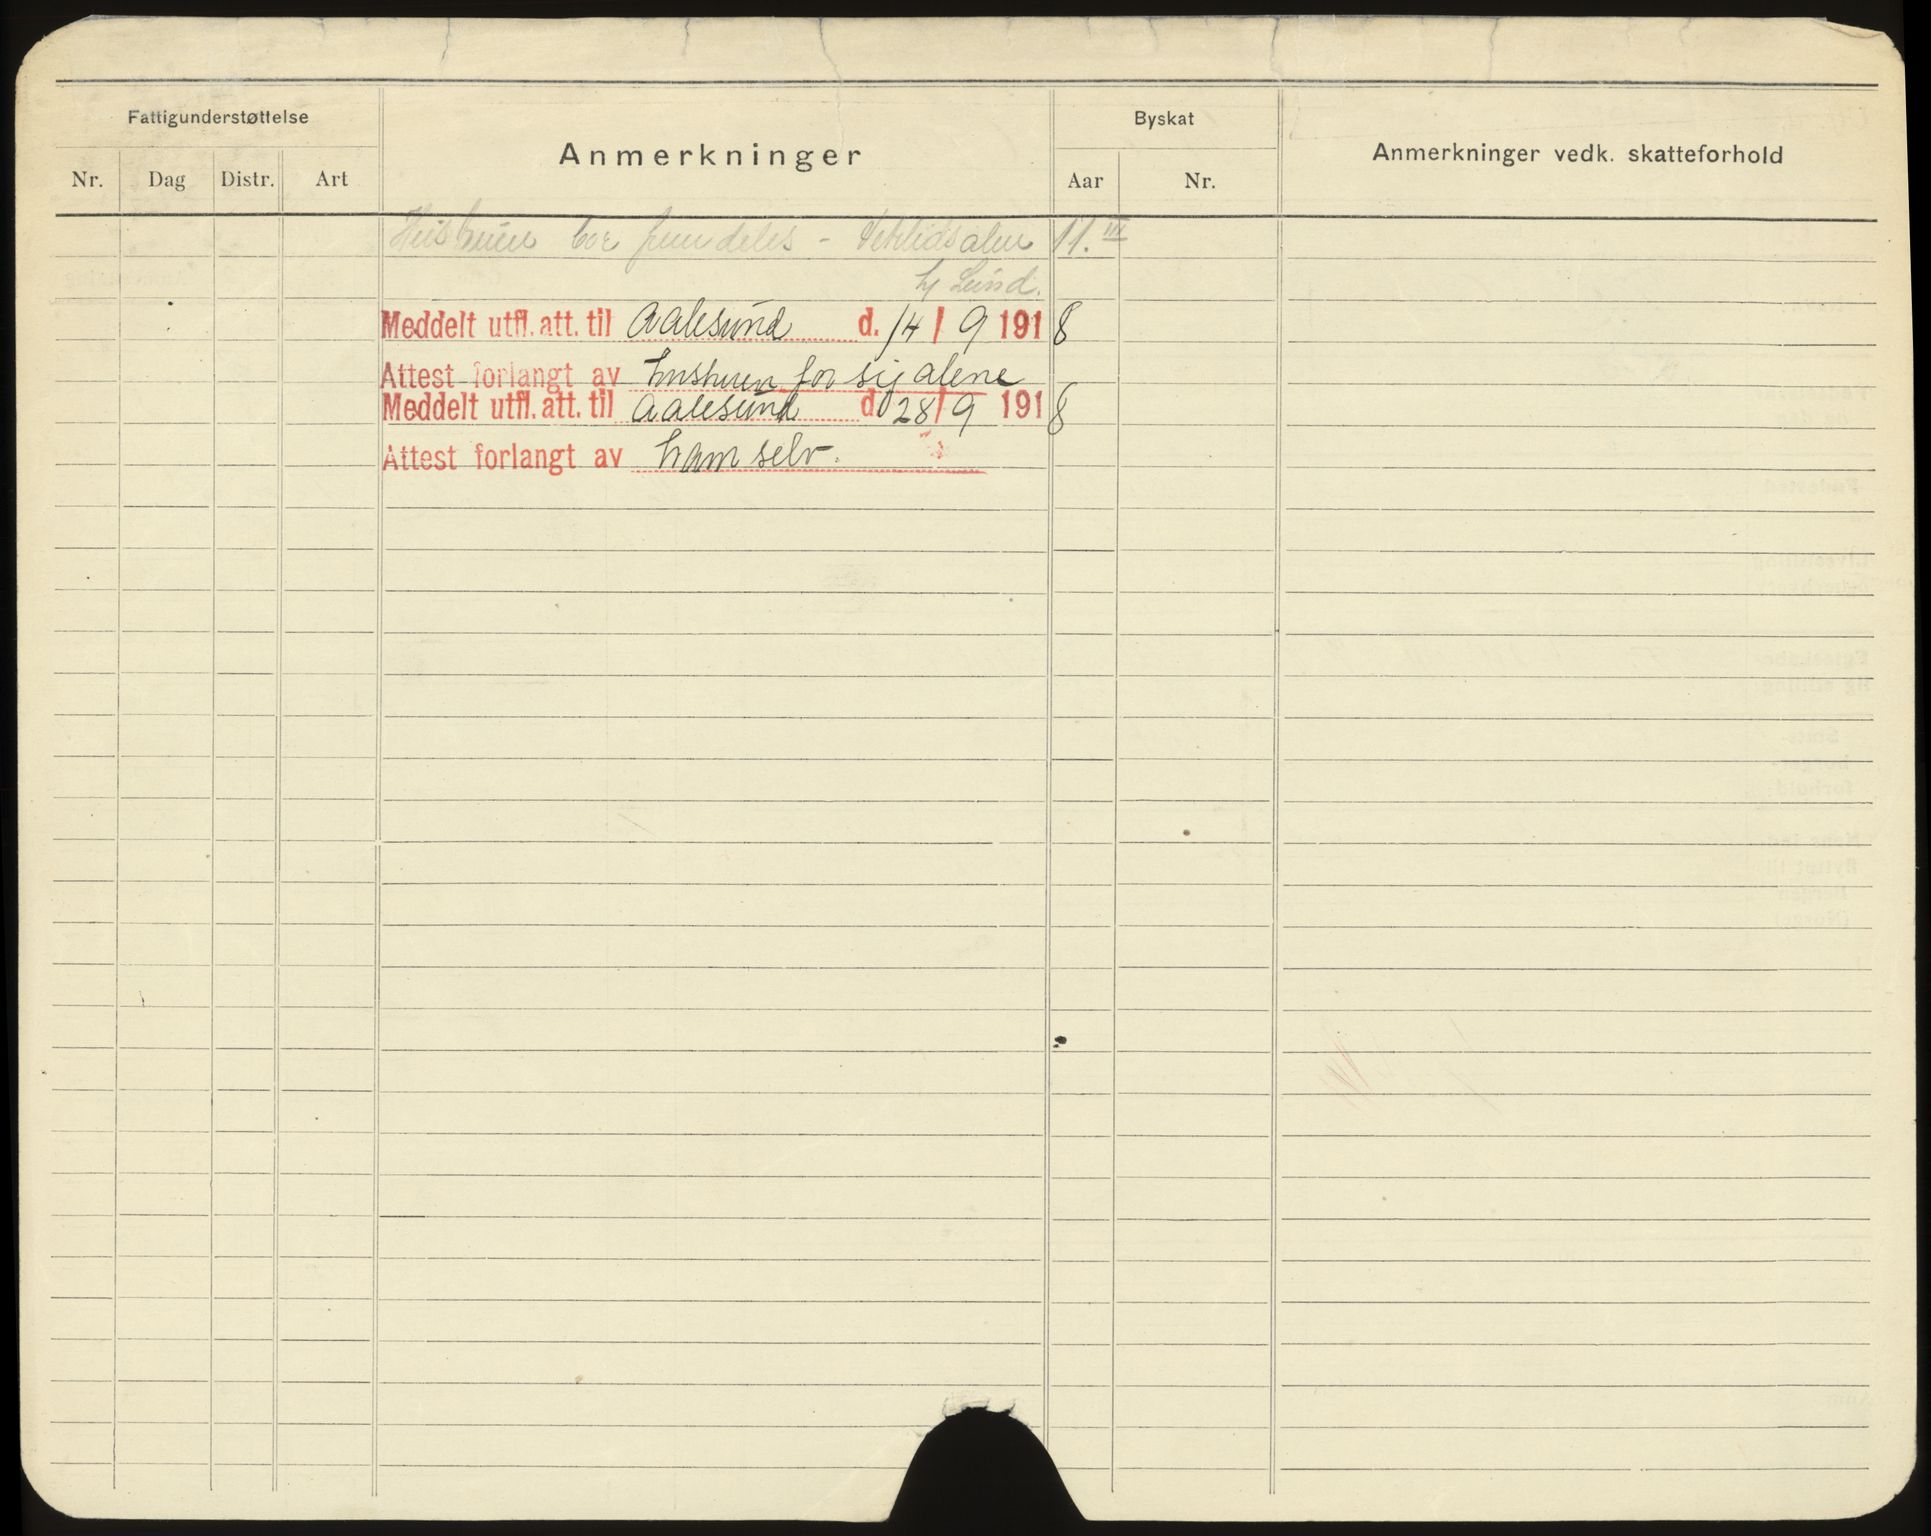 Fattigunderstøttelse
Anmerkninger
Byskat
Anmerkninger vedk. skatteforhold
Nr. Dag Distr. Art
Aar Nr.
Hustruen bor fremdeles - 11. III
Lund.
Meddelt utfl. att. til Aalesund d. 14/9 1918
Attest forlangt av hustruen for sig alene
Meddelt utfl. att. til Aalesund d. 28/9 1918
Attest forlangt av ham selv.